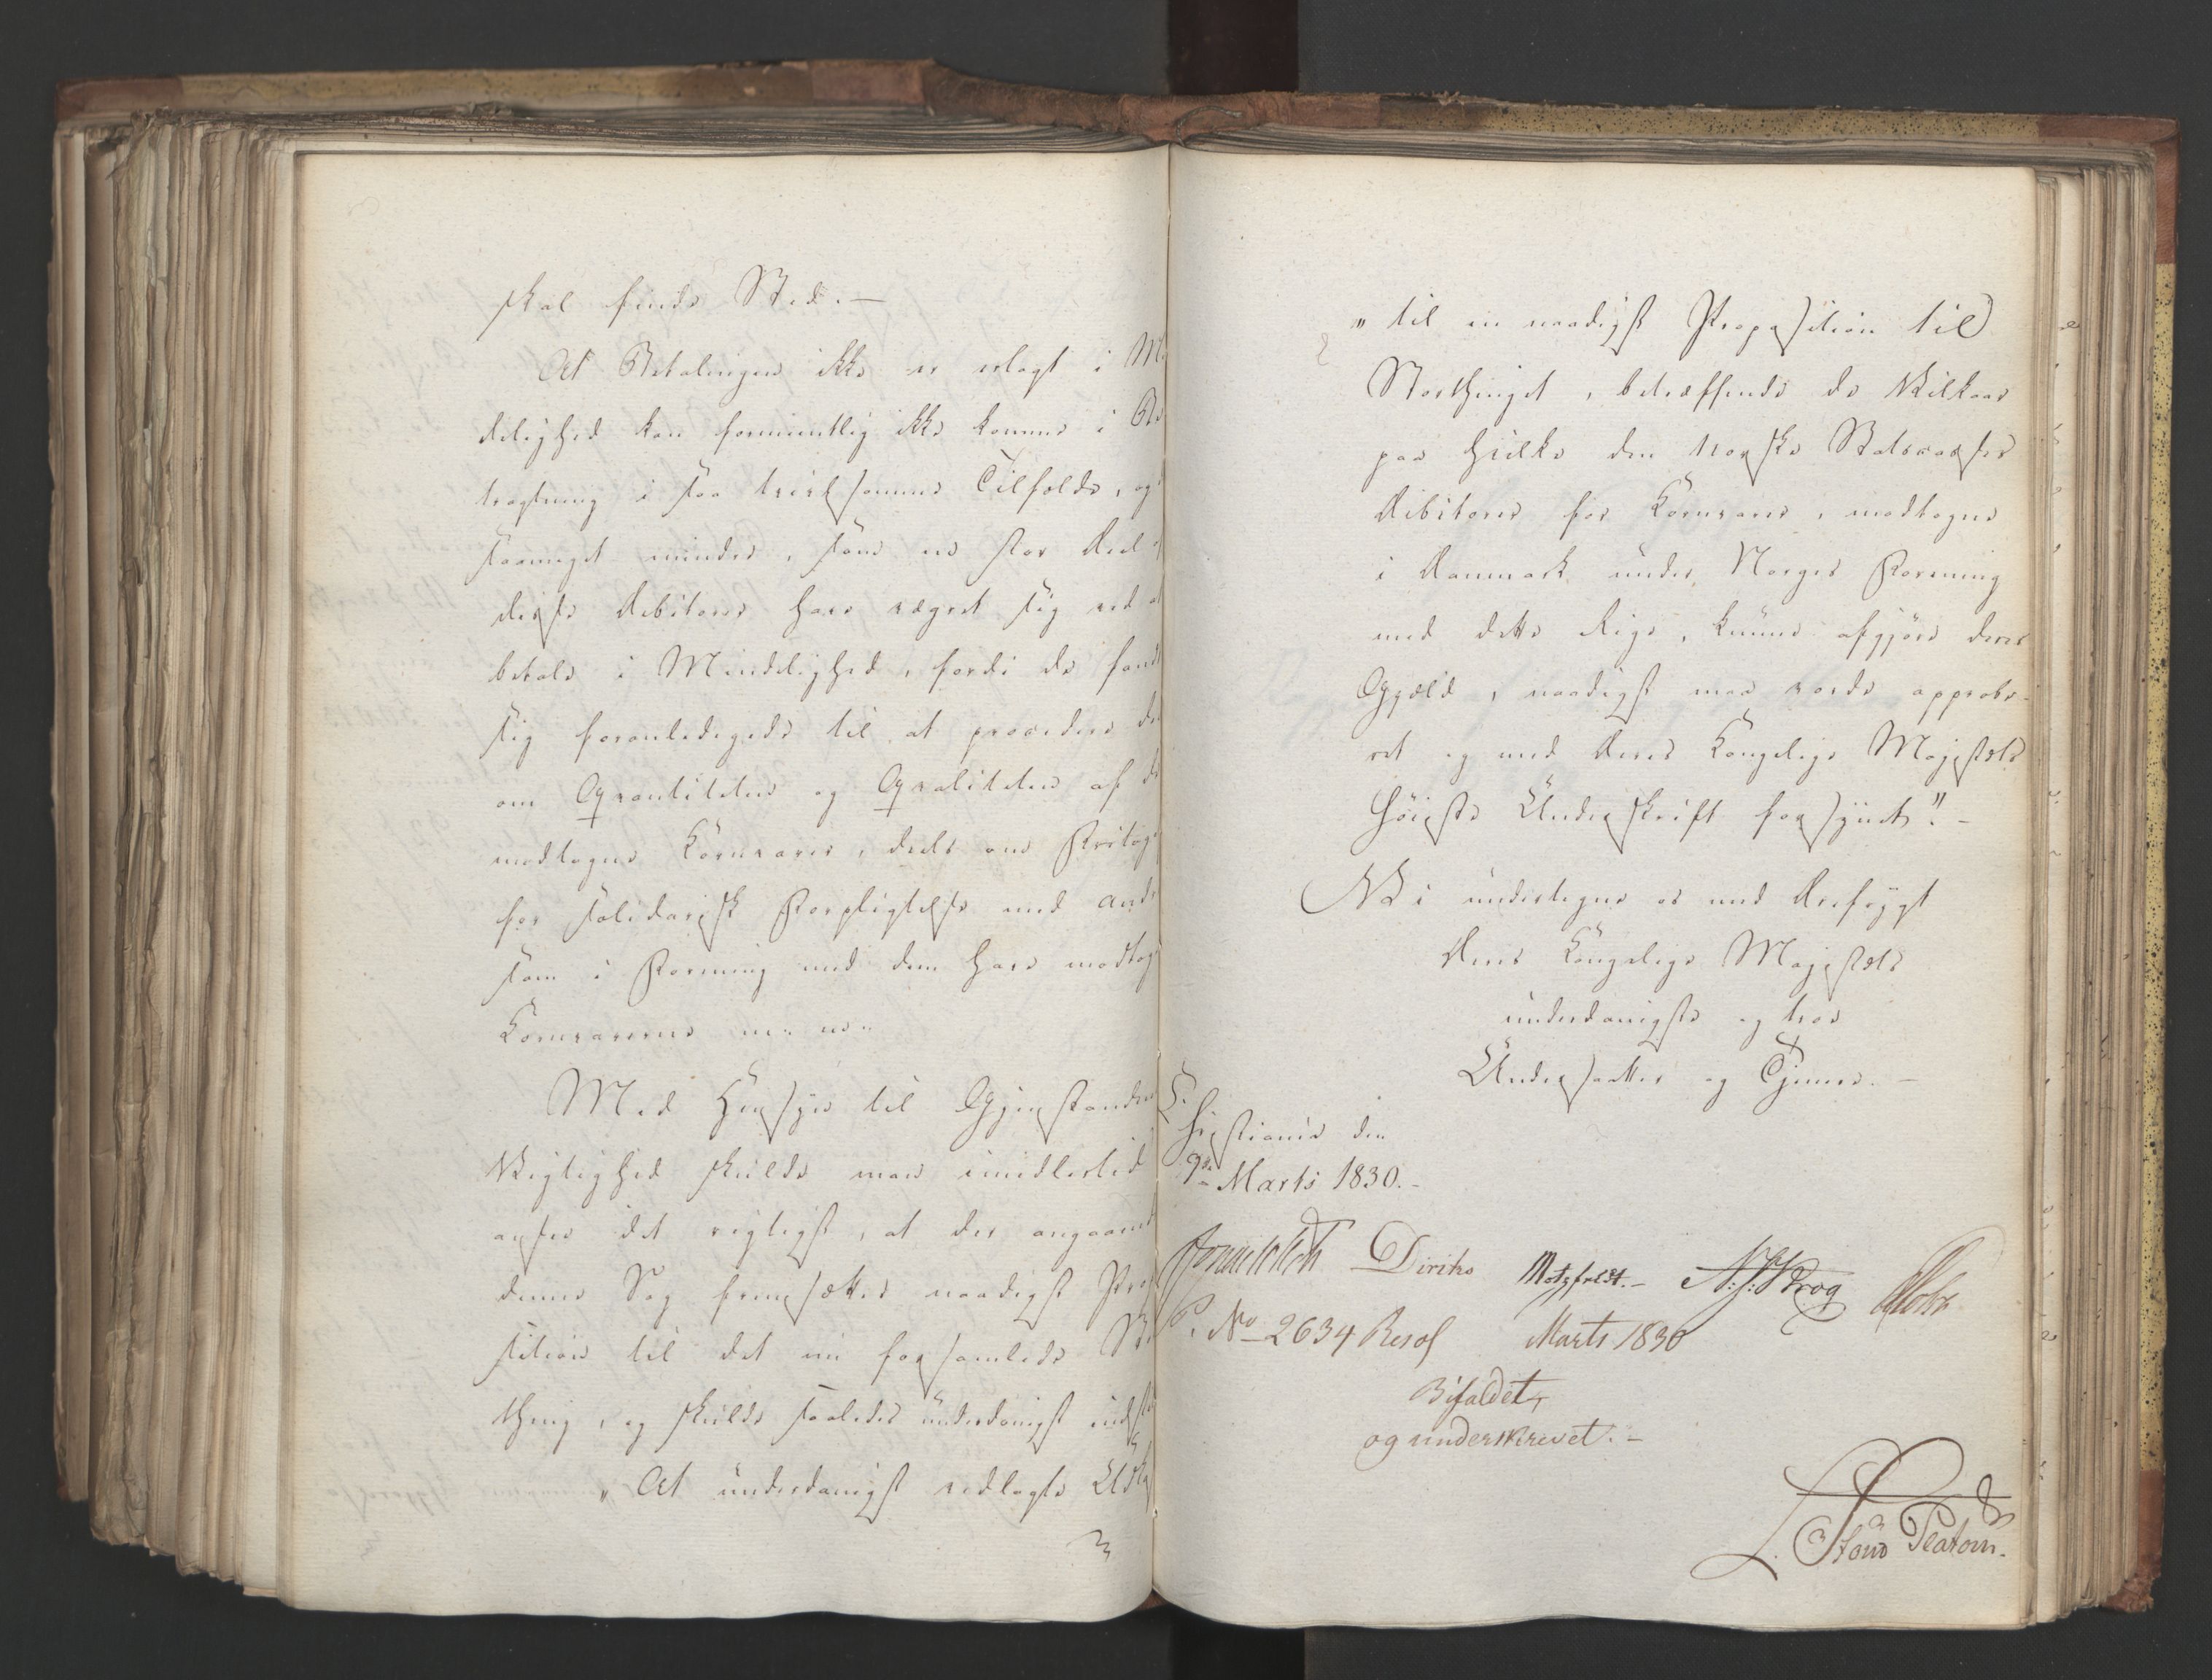 skal finde Sted. —
At Betalingen ikke er erlagt i M
delighed kan formeentlig ikke komme i Be
tragtning i saa tvivlsomme Tilfælde, og
saameget mindre, som en stor Deel af
disse Debitorer have vægret sig ved at
betale i Mindelighed, fordi de fandt
sig foranledigede til at procedere de
om Qvantiteten og Qvaliteten af de
modtagne Kornvarer, deels om Fritag
for solidarisk Forpligtelse med andre
som i Forening med dem have modtag
Kornvarerne m: m:
Med Hensyn til Gjenstanden
Vigtighed skulde man imidlertid
ansee det rigtigst, at der angaaend
denne Sag fremsættes naadigst Pro
sition til det nu forsamlede St
thing, og skulde saaledes underdanigst indst
„At underdanigst vedlagte Udka
„til en naadigst Proposition til
Storthinget, betræffende de Vilkaar
paa hvilke den norske Statscasses
Debitorer for Kornvarer, modtagne
i Danmark under Norges Forening
med dette Rige, kunne afgjøre deres
Gjæld, naadigst maa vorde approbe-
ret og med Deres Kongelige Majestæts
Høieste Underskrift forsynet". —
Vi undertegne os med Ærefrygt
Deres Kongelige Majestæts
underdanigste og troe
Undersaatter og Tjenere. —
Christiania den
9de Marts 1830. —
Diriks Motzfeldt. — N: J: Krog
P. No 2634 Resol Marts 1830
Bifaldet,
og underskrevet. —
Platou.